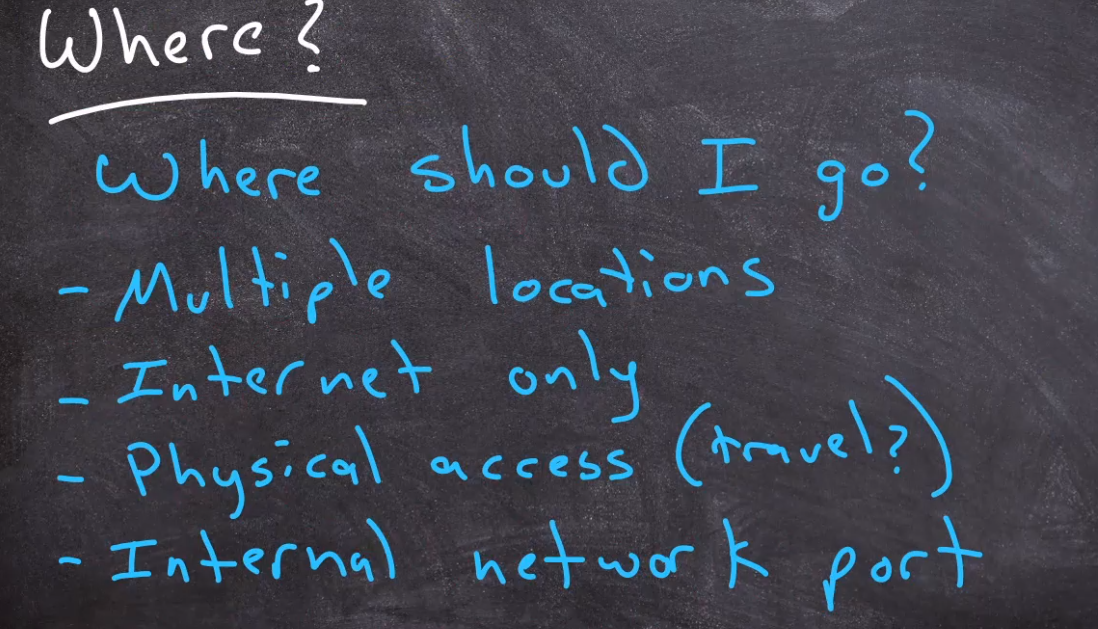 Where?
Where should I go?
- Multiple locations
- Internet only
- Physical access (travel?)
- Internal network port